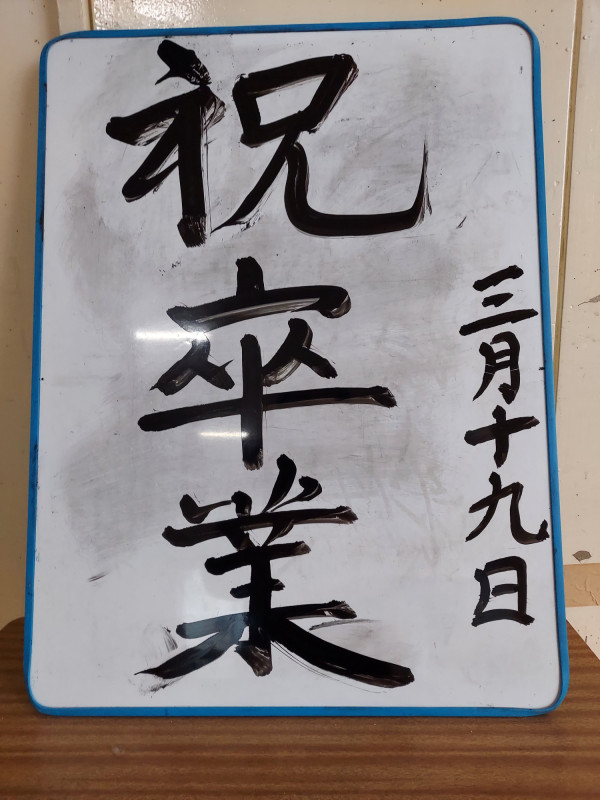 三月十九日
祝卒業